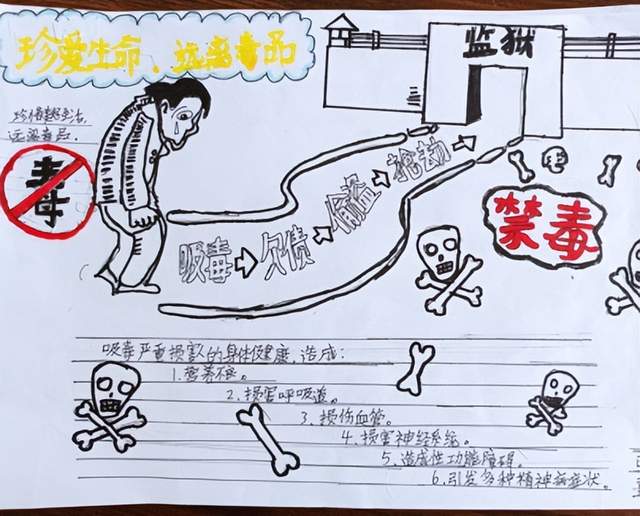 珍爱生命、远离毒品
监狱
珍惜
远离毒品.
毒
吸毒→欠债→偷盗→抢劫→
禁毒
吸毒严重损害人的身体健康,造成:
1.营养不良。
2.损害呼吸道。
3.损伤血管。
4.损害神经系统。
5.造成性功能障碍。
6.引发多种精神病症状。